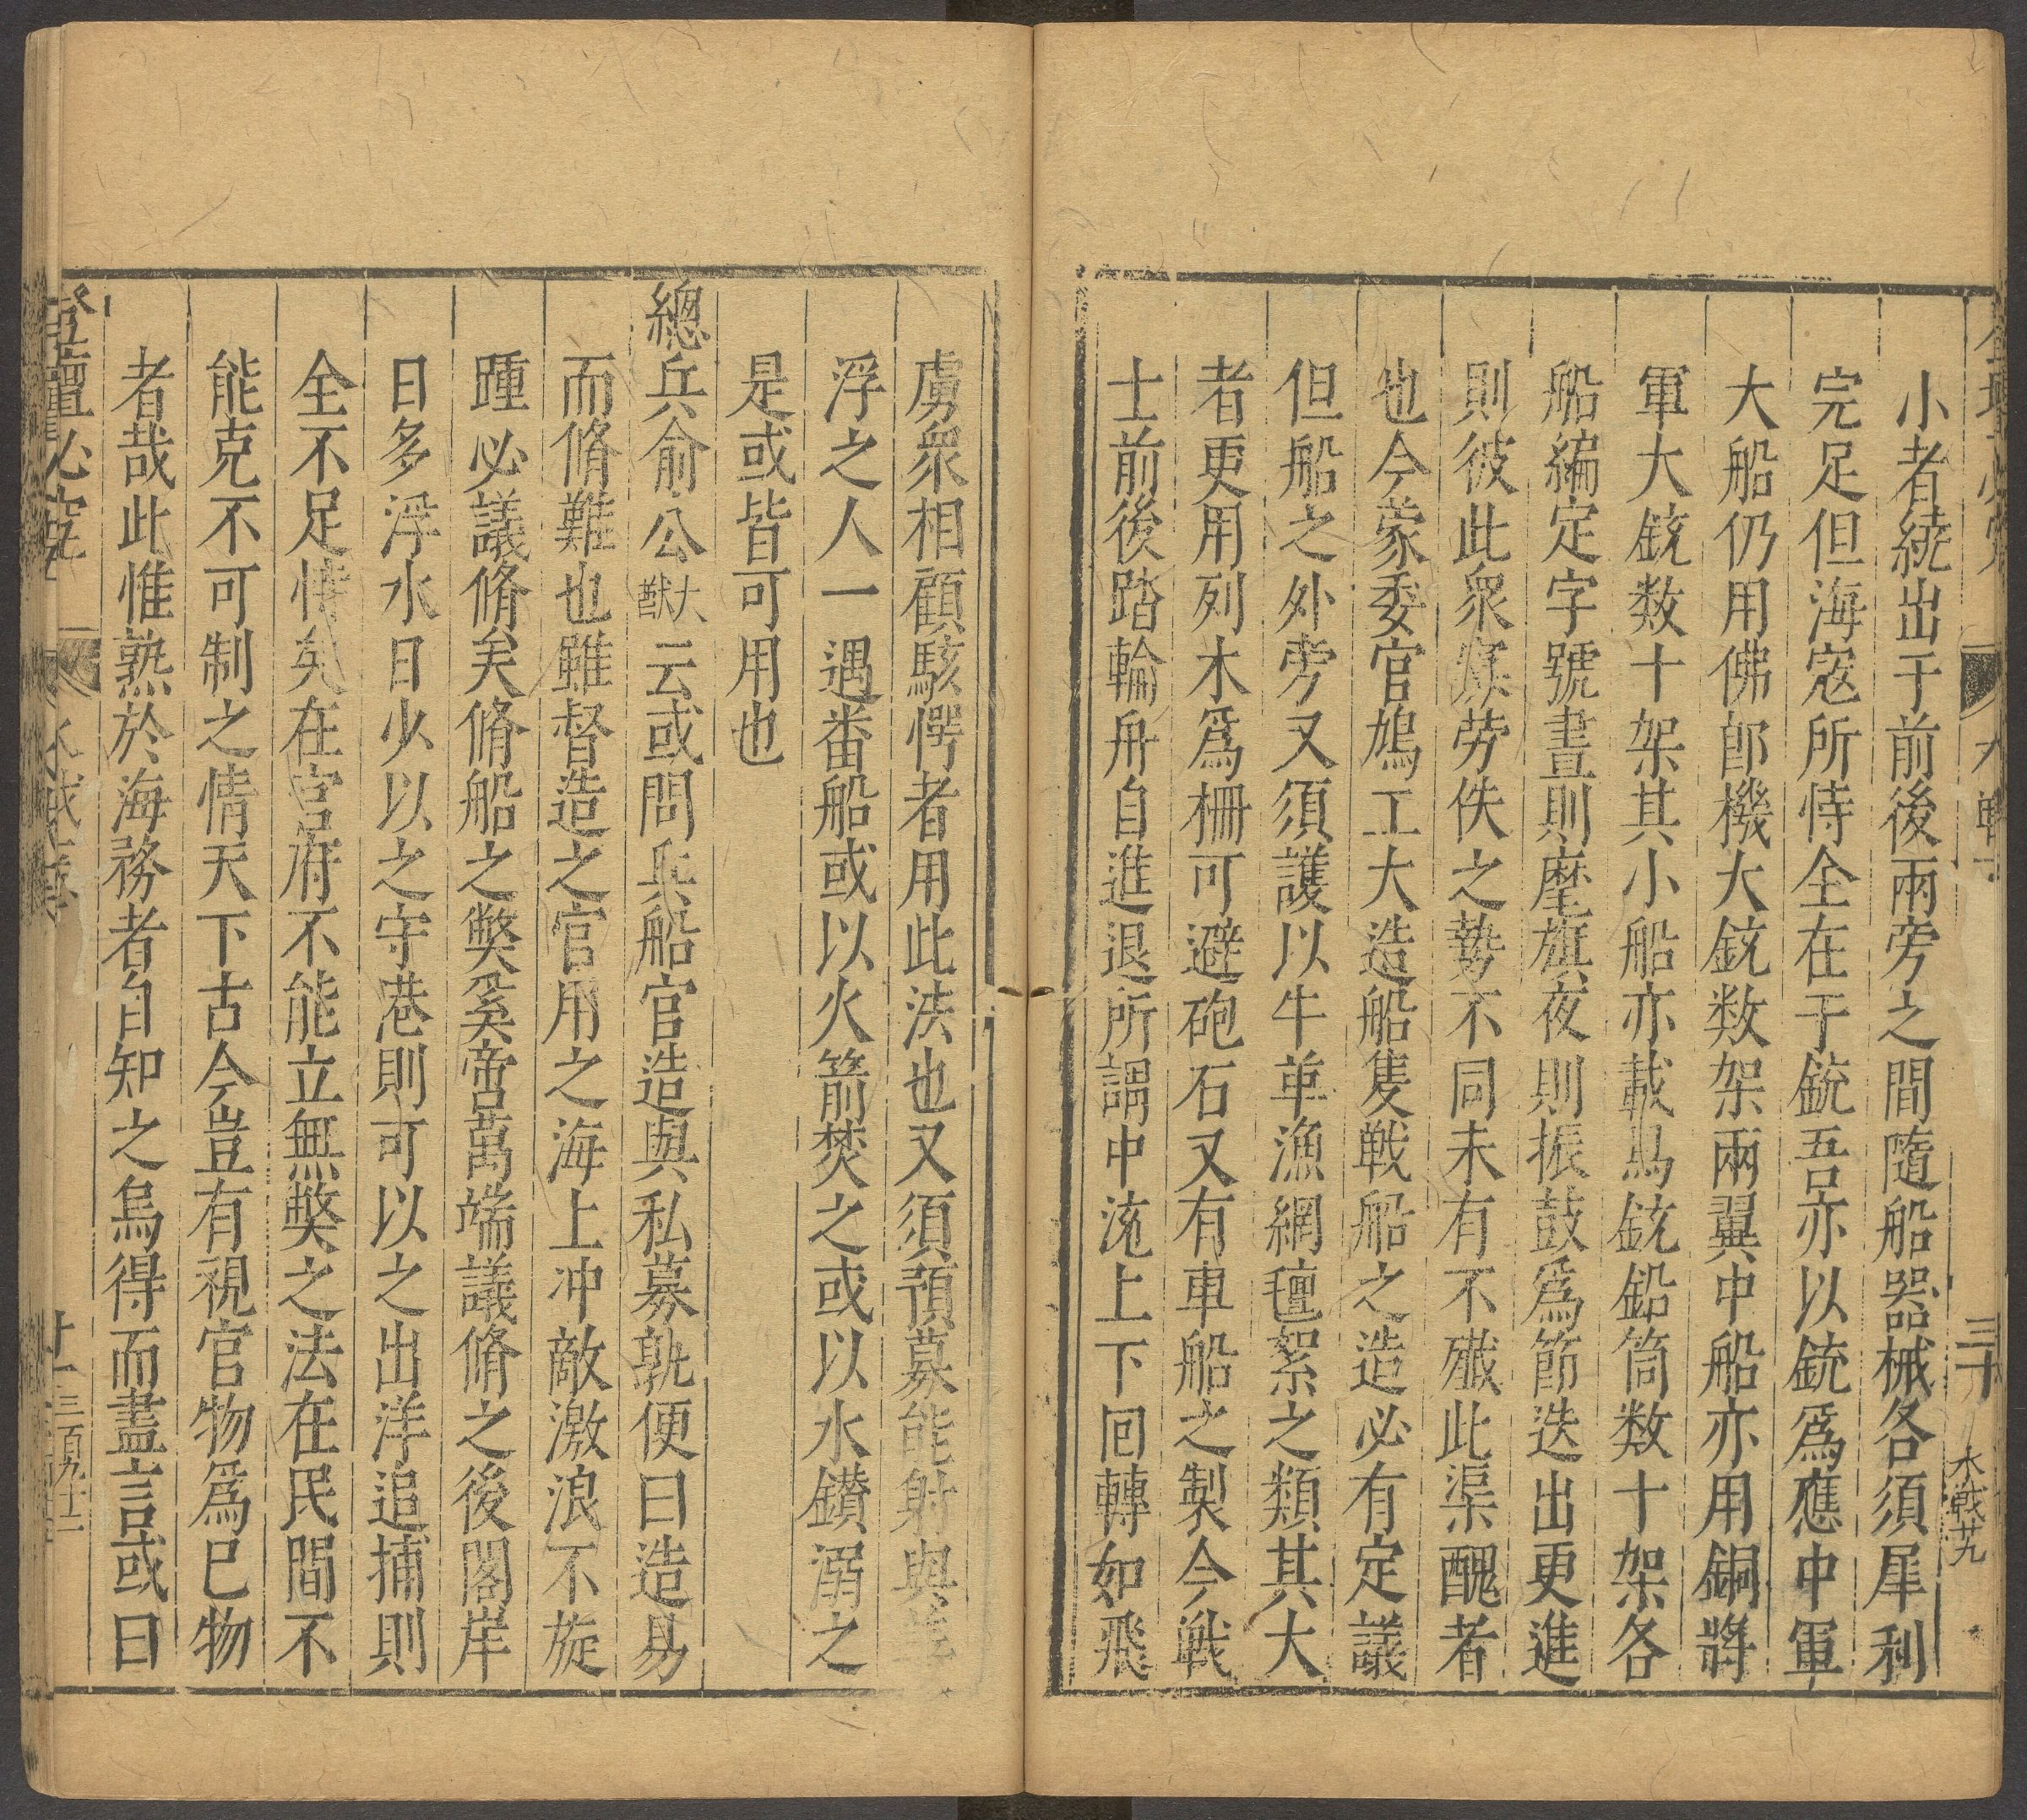 小者繞出于前後兩旁之間隨船器械各須犀利
完足但海寇所恃全在于銃吾亦以銃爲應中軍
大船仍用佛郎機大銃数架兩翼中船亦用銅將
軍大銃数十架其小船亦載鳥銃鉛筒数十架各
船編定字號晝則麾旗夜則振鼓爲節迭出更進
則彼此衆寡劳佚之勢不同未有不殱此渠醜者
也今蒙委官鳩工大造船隻戦船之造必有定議
但船之外旁又須護以牛革漁網氊絮之類其大
者更用列木爲柵可避砲石又有車船之製今戦
士前後踏輪舟自進退所謂中流上下回轉如飛
三十
水戦廿九
虜衆相顧駭愕者用此法也又須預募能射與
浮之人一遇畨船或以火箭焚之或以水鑽溺之
是或皆可用也
總兵俞公大猷云或問兵船官造與私募孰便曰造易
而脩難也雖督造之官用之海上冲敵激浪不旋
踵必議脩矣脩船之弊奚啻萬端議脩之後閣岸
日多浮水日少以之守港則可以之出洋追捕則
全不足恃矣在官府不能立無弊之法在民間不
能克不可制之情天下古今豈有視官物爲已物
者哉此惟熟於海務者自知之烏得而盡言或曰
登壇必究
三百九十二